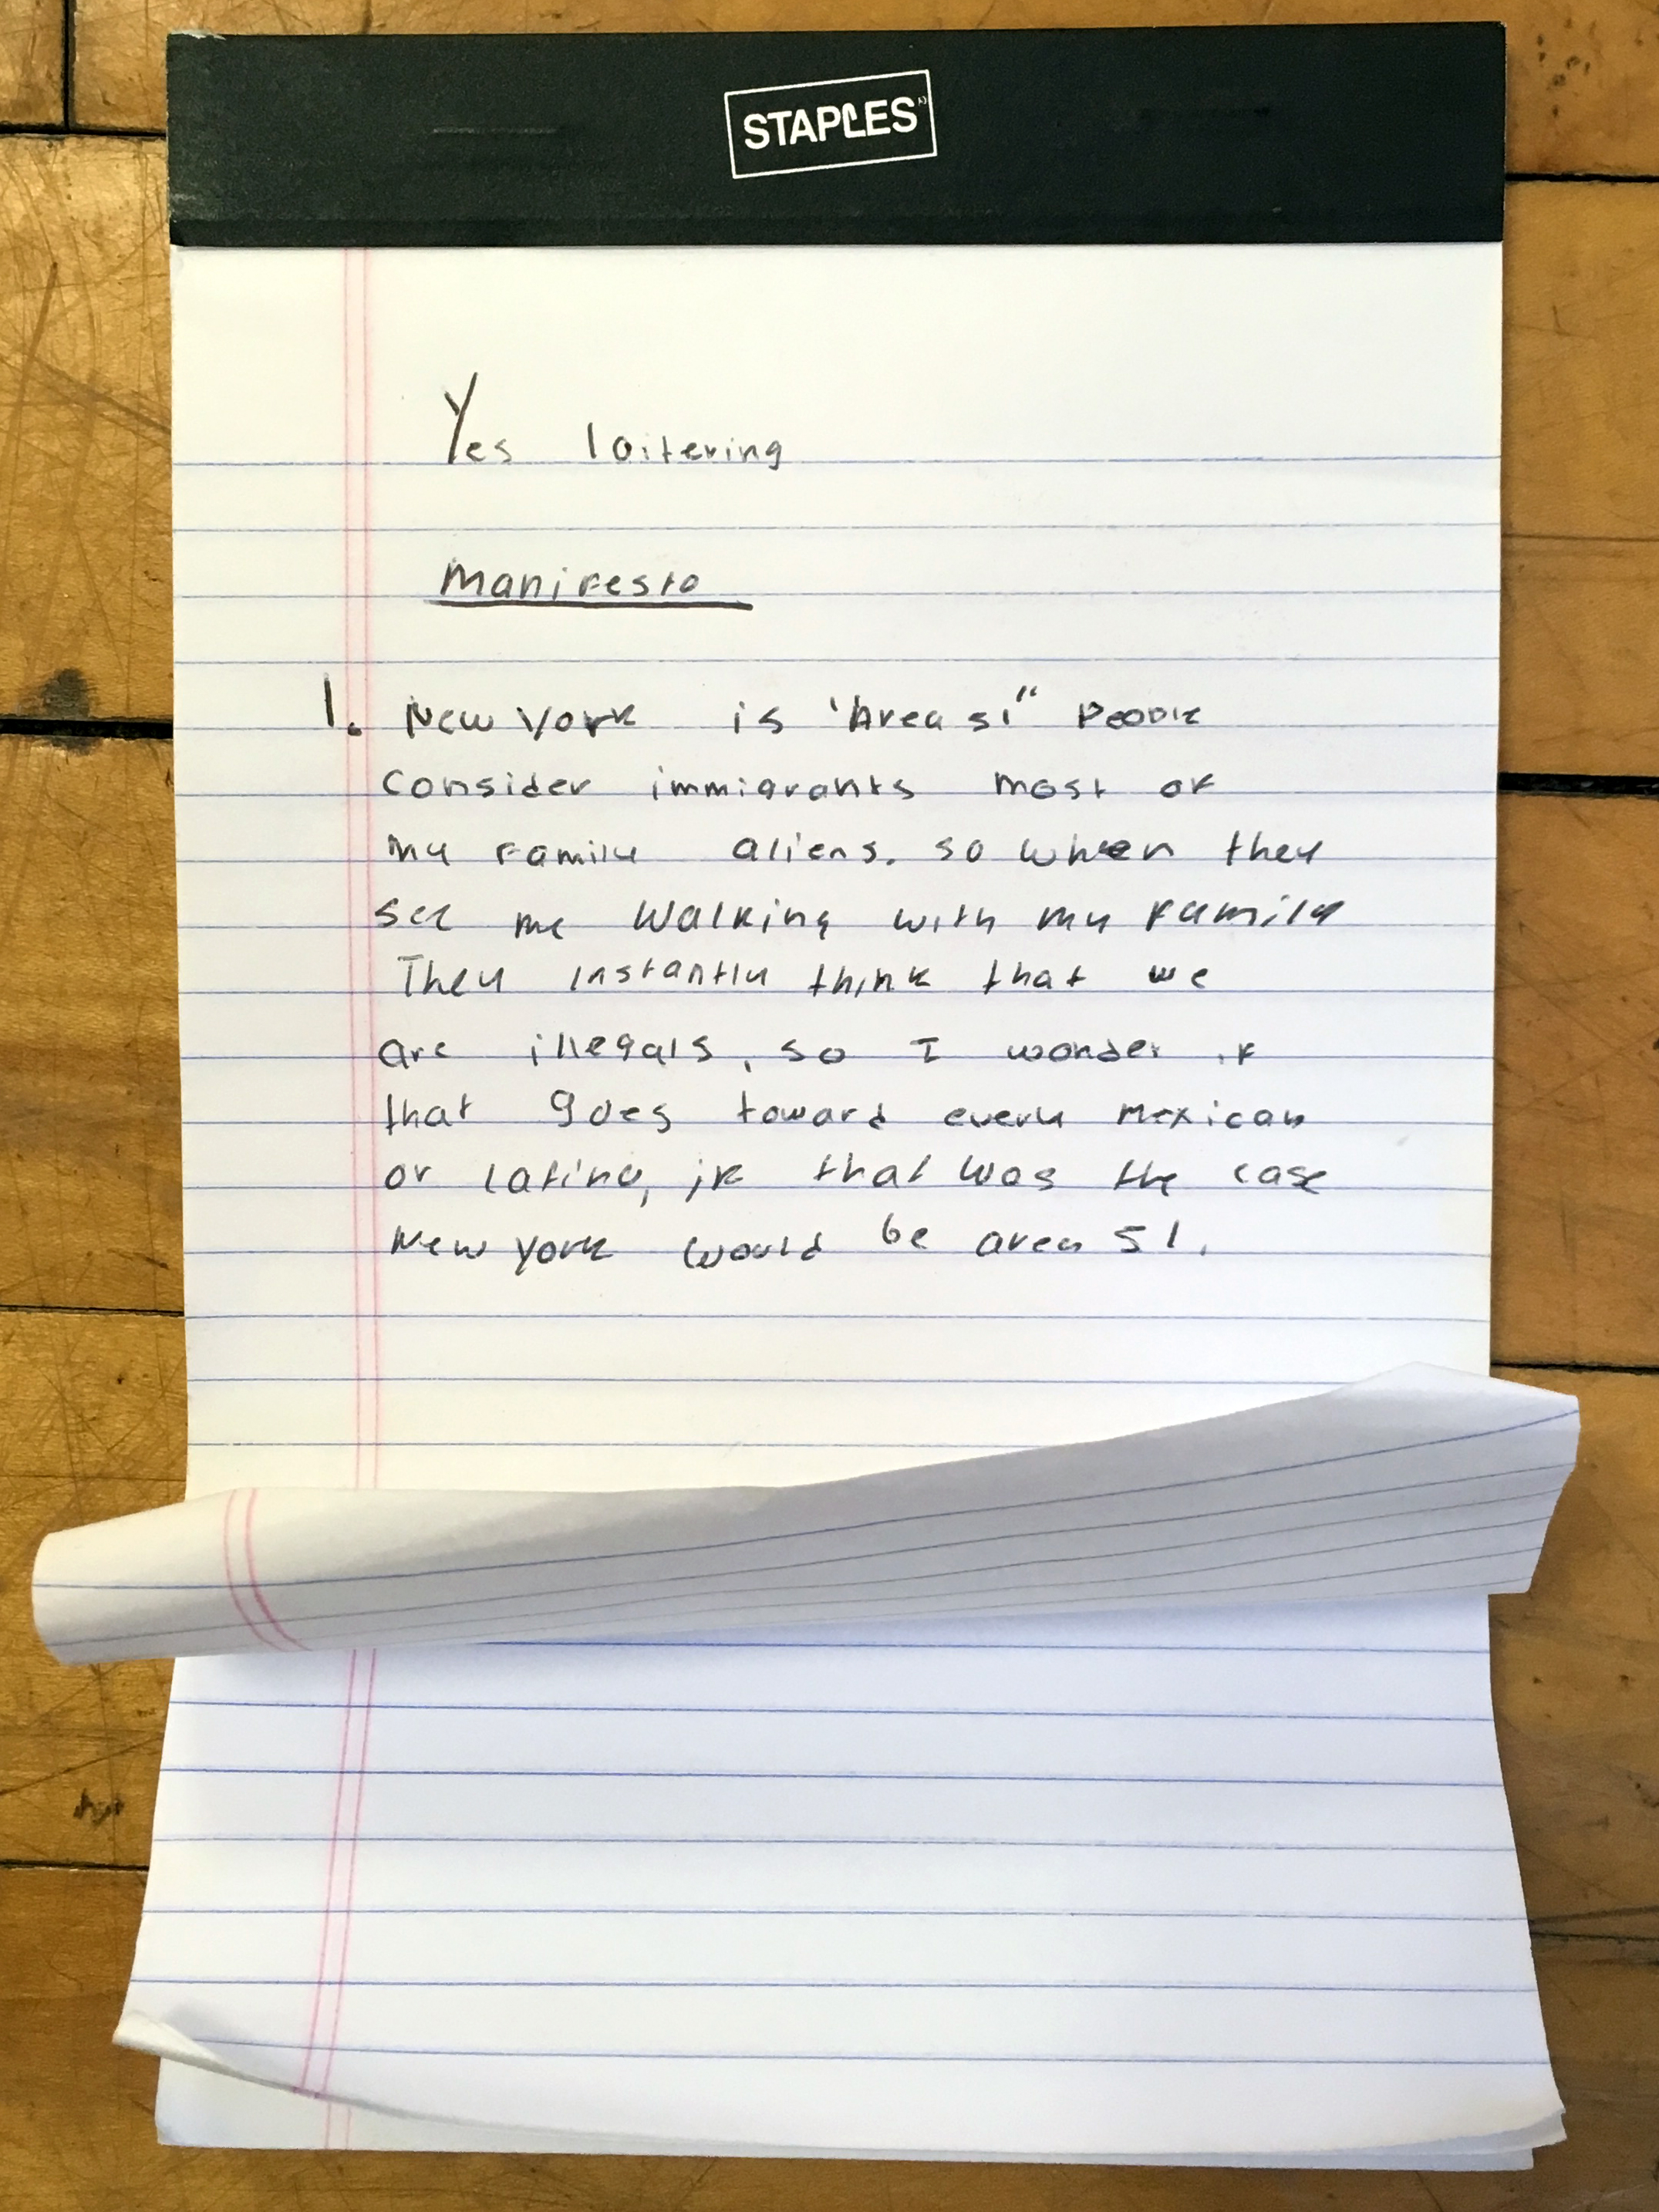 STAPLES
Yes loitering
Manifesto
1. New York is "Area 51" People
consider immigrants most of
my family aliens. so when they
see me walking with my family
They instantly think that we
are illegals, so I wonder if
that goes toward every mexican
or latino, if that was the case
New york would be area 51.